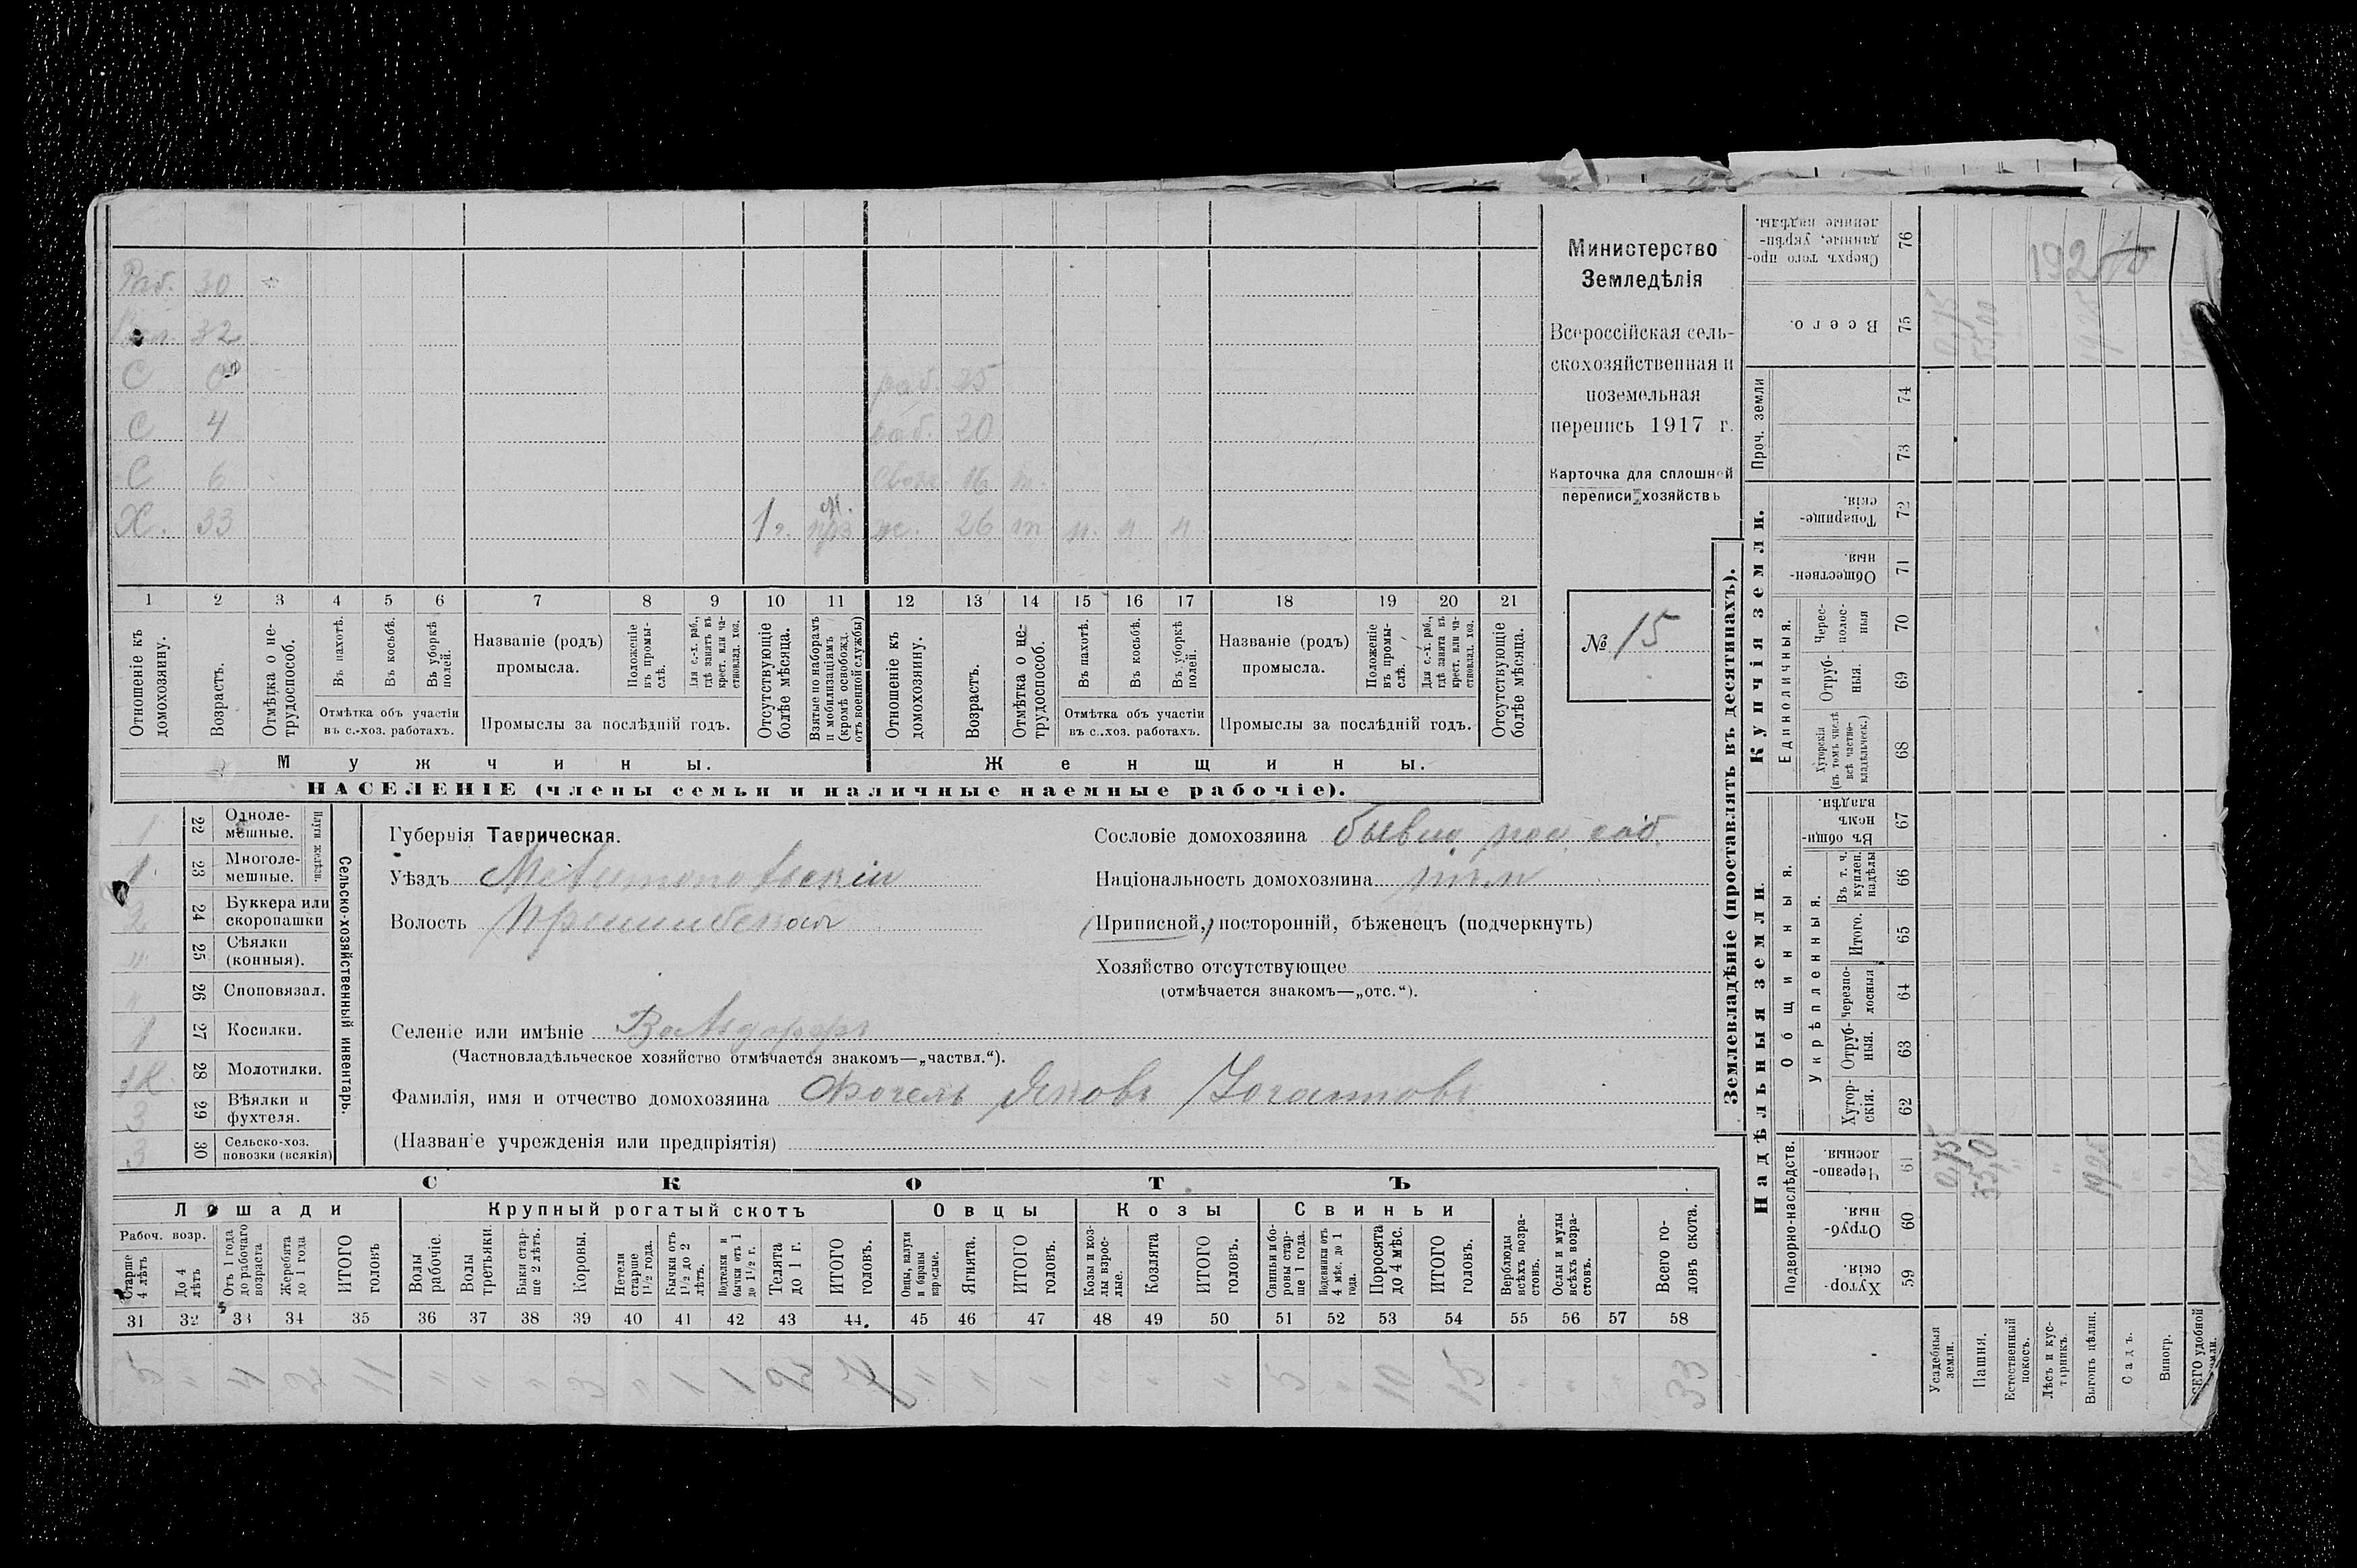 Раб. 30
Раб. 32
С 0
С 4
С 6
Х. 33 1
раб. 25
раб. 20
16 т.
ж. 26 т
1 2 3 4 5 6 7 8 9 10 11 12 13 14 15 16 17 18 19 20 21
Отношеніе къ домохозяину.
Возрастъ.
Отмѣтка о нетрудоспособ.
Въ пахотѣ.
Въ косьбѣ.
Въ уборкѣ полей.
Отмѣтка объ участіи въ с.-хоз. работахъ.
Названіе (родъ) промысла.
Положеніе въ промыслѣ.
Для с.-х. раб., гдѣ занятъ въ крест. или частновлад. хоз.
Промыслы за послѣдній годъ.
Отсутствующіе болѣе мѣсяца.
Взятые по наборамъ и мобилизаціямъ (кромѣ освобожд. отъ военной службы)
Отношеніе къ домохозяину.
Возрастъ.
Отмѣтка о нетрудоспособ.
Въ пахотѣ.
Въ косьбѣ.
Въ уборкѣ полей.
Отмѣтка объ участіи въ с.-хоз. работахъ.
Названіе (родъ) промысла.
Положеніе въ промыслѣ.
Для с.-х. раб., гдѣ занята въ крест. или частновлад. хоз.
Промыслы за послѣдній годъ.
Отсутствующіе болѣе мѣсяца.
Мужчины.
Женщины.
НАСЕЛЕНІЕ (члены семьи и наличные наемные рабочіе).
Министерство
Земледѣлія
Всероссійская сель-
скохозяйственная и
поземельная
перепись 1917 г.
Карточка для сплошной
переписи хозяйствъ
№ 15
1 22 Одноле-мешные.
1 23 Многоле-мешные.
Плуги желѣзн.
2 24 Буккера или скоропашки
" 25 Сѣялки (конныя).
26 Сноповязал.
1 27 Косилки.
28 Молотилки.
3 29 Вѣялки и фухтеля.
3 30 Сельско-хоз. повозки (всякія)
Сельско-хозяйственный инвентарь.
Губернія Таврическая.
Уѣздъ Мелитопольскій
Волость Пришибская
Селеніе или имѣніе Вальдорфъ
(Частновладѣльческое хозяйство отмѣчается знакомъ—„частвл.“).
Фамилія, имя и отчество домохозяина Фогель Яковъ Іоганновъ
(Названіе учрежденія или предпріятія)
Сословіе домохозяина бывш. пос. соб.
Національность домохозяина нѣм
(Приписной,) посторонній, бѣженецъ (подчеркнуть)
Хозяйство отсутствующее
(отмѣчается знакомъ—„отс.“).
СКОТЪ
Лошади
Крупный рогатый скотъ
Овцы
Козы
Свиньи
Рабоч. возр.
Старше 4 лѣтъ
До 4 лѣтъ
Отъ 1 года до рабочаго возраста
Жеребята до 1 года
ИТОГО головъ
Волы рабочіе.
Волы третьяки.
Быки старше 2 лѣтъ.
Коровы.
Нетели старше 1 1/2 года.
Бычки отъ 1 1/2 до 2 лѣтъ.
Подтелки и бычки отъ 1 до 1 1/2 г.
Телята до 1 г.
ИТОГО головъ.
Овцы, валухи и бараны взрослые.
Ягнята.
ИТОГО головъ.
Козы и козлы взрослые.
Козлята
ИТОГО головъ.
Свиньи и боровы старше 1 года.
Подсвинки отъ 4 мѣс. до 1 года.
Поросята до 4 мѣс.
ИТОГО головъ.
Верблюды всѣхъ возрастовъ.
Ослы и мулы всѣхъ возрастовъ.
Всего головъ скота.
31 32 33 34 35 36 37 38 39 40 41 42 43 44. 45 46 47 48 49 50 51 52 53 54 55 56 57 58
5 " 4 2 11 " " " 3 " 1 1 2 7 " " " " " " 5 " 10 15 33
Землевладѣніе (проставлять въ десятинахъ).
Купчія земли.
Надѣльныя земли.
Сверхъ того проданные, укрѣпленные надѣлы. 76
Всего. 75
Проч. земли 74 73
Товарищескія. 72
Общественныя. 71
Единоличныя.
Чересполосныя 70
Отрубныя. 69
Хуторскія (въ томъ числѣ всѣ частновладѣльческ.) 68
Въ общиннемъ владѣн. 67
Общинныя.
Укрѣпленныя.
Въ т. ч. куплен. надѣлы 66
Итого. 65
Черезполосныя 64
Отрубныя. 63
Хуторскія. 62
Подворно-наслѣдств.
Черезполосныя. 61
Отрубныя. 60
Хуторскія. 59
Усадебныя земли.
Пашня.
Естественный покосъ.
Лѣсъ и кустарникъ.
Выгонъ цѣлин.
Садъ.
Виногр.
ВСЕГО удобной земли.
0,75
55,00
19,25
192
0,75
55,0
19,25